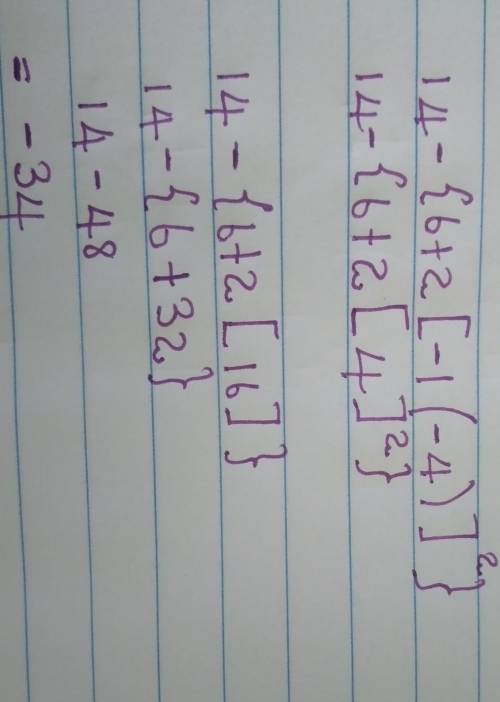 14 - {6+2[-1(-4)]²}
14 - {6+2[4]²}
14 - {6+2[16]}
14 - {6+32}
14 - 48
= -34